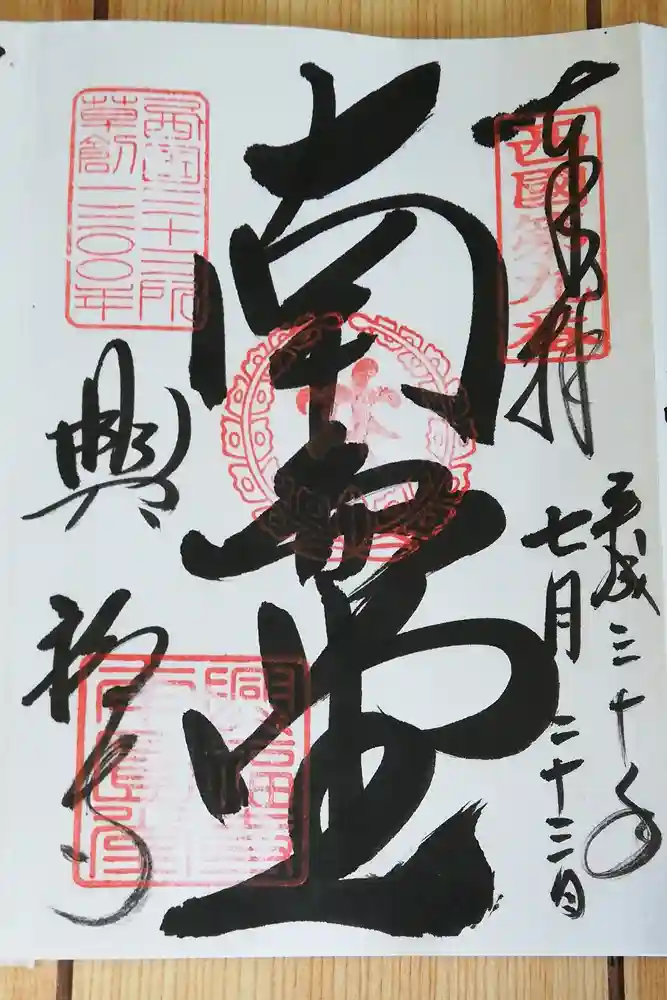 奉拝
西國第九番
平成三十年
七月二十三日
南円堂
西国三十三所
草創一三〇〇年
興福寺
興福寺